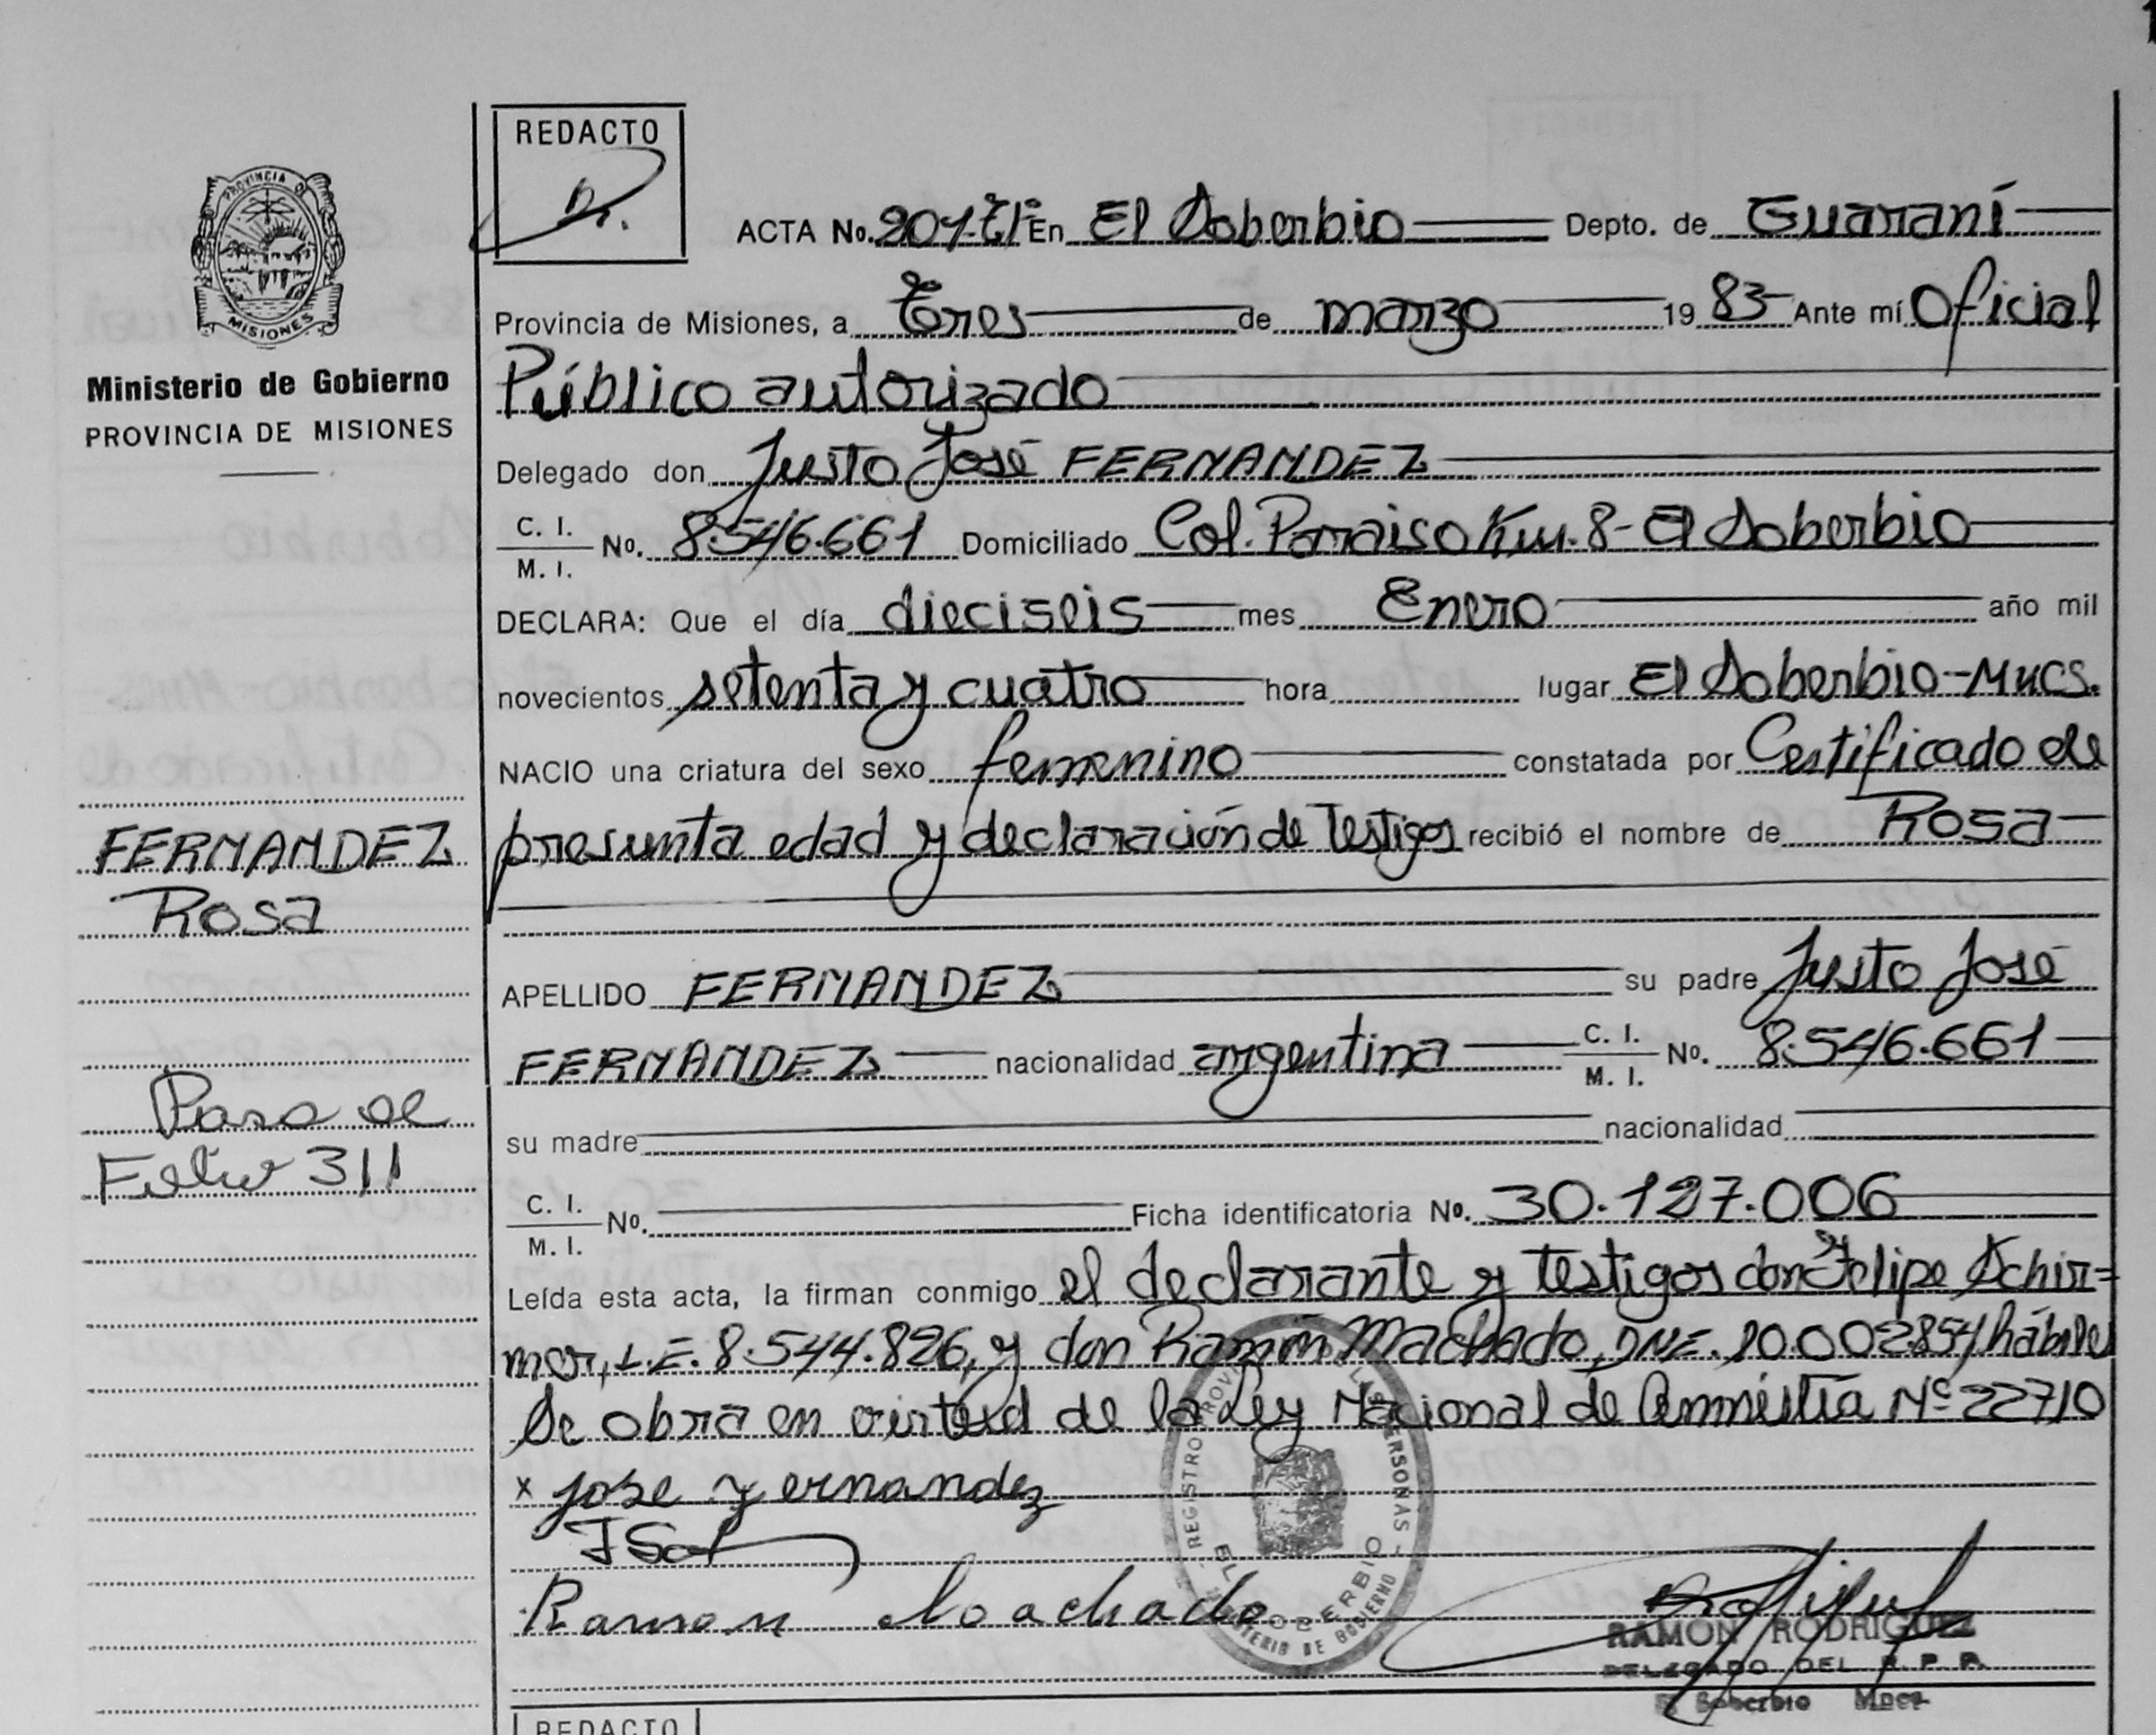 REDACTO
PROVINCIA DE
MISIONES
Ministerio de Gobierno
PROVINCIA DE MISIONES
ACTA No. 201-Tº1º En El Soberbio Depto. de Guaraní
Provincia de Misiones, a Tres de marzo 19 83 Ante mí Oficial
Público autorizado
Delegado don Justo José FERNANDEZ
C. I. M. I. No. 8.546.661 Domiciliado Col. Paraiso Km. 8 - El Soberbio
DECLARA: Que el día dieciseis mes Enero año mil
novecientos setenta y cuatro hora lugar El Soberbio-Mnes.
NACIO una criatura del sexo femenino constatada por Certificado de
presunta edad y declaración de Testigos recibió el nombre de Rosa
FERNANDEZ
Rosa
APELLIDO FERNANDEZ su padre Justo José
FERNANDEZ nacionalidad argentina C. I. M. I. No. 8.546.661
su madre nacionalidad
Paso al
Folio 311
C. I. M. I. No. Ficha identificatoria Nº. 30.127.006
Leída esta acta, la firman conmigo el declarante y testigos don Felipe Schir=
mer, L.E. 8.544.826, y don Ramón Machado, DNE. 10.002854 hábiles
Se obra en virtud de la Ley Nacional de Amnistía Nº 22710
x jose Fernandez
Ramon Machado
REGISTRO PROV LAS PERSONAS
EL SOBERBIO
MINISTERIO DE GOBIERNO
RAMON RODRIGUEZ
DELEGADO DEL R. P. P.
El Soberbio Mnes
REDACTO